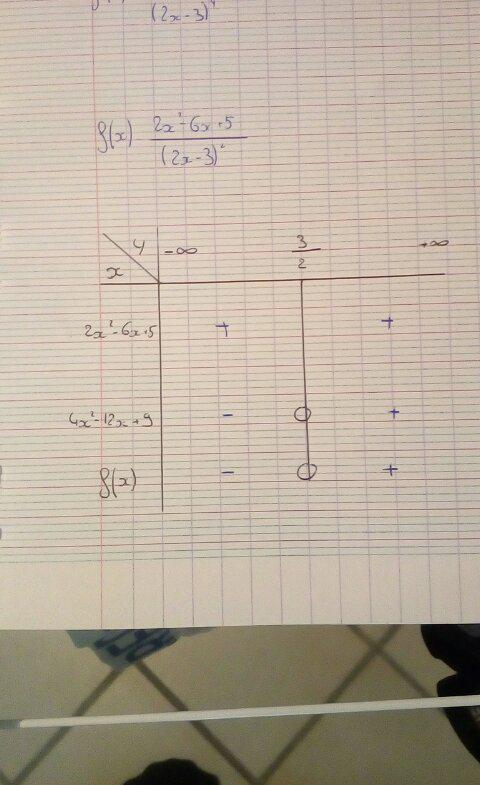 (2x-3)⁴
f(x) 2x²-6x+5
(2x-3)²
y -∞ 3/2 +∞
x
2x²-6x+5 + +
4x²-12x+9 - 0 +
f(x) - 0 +